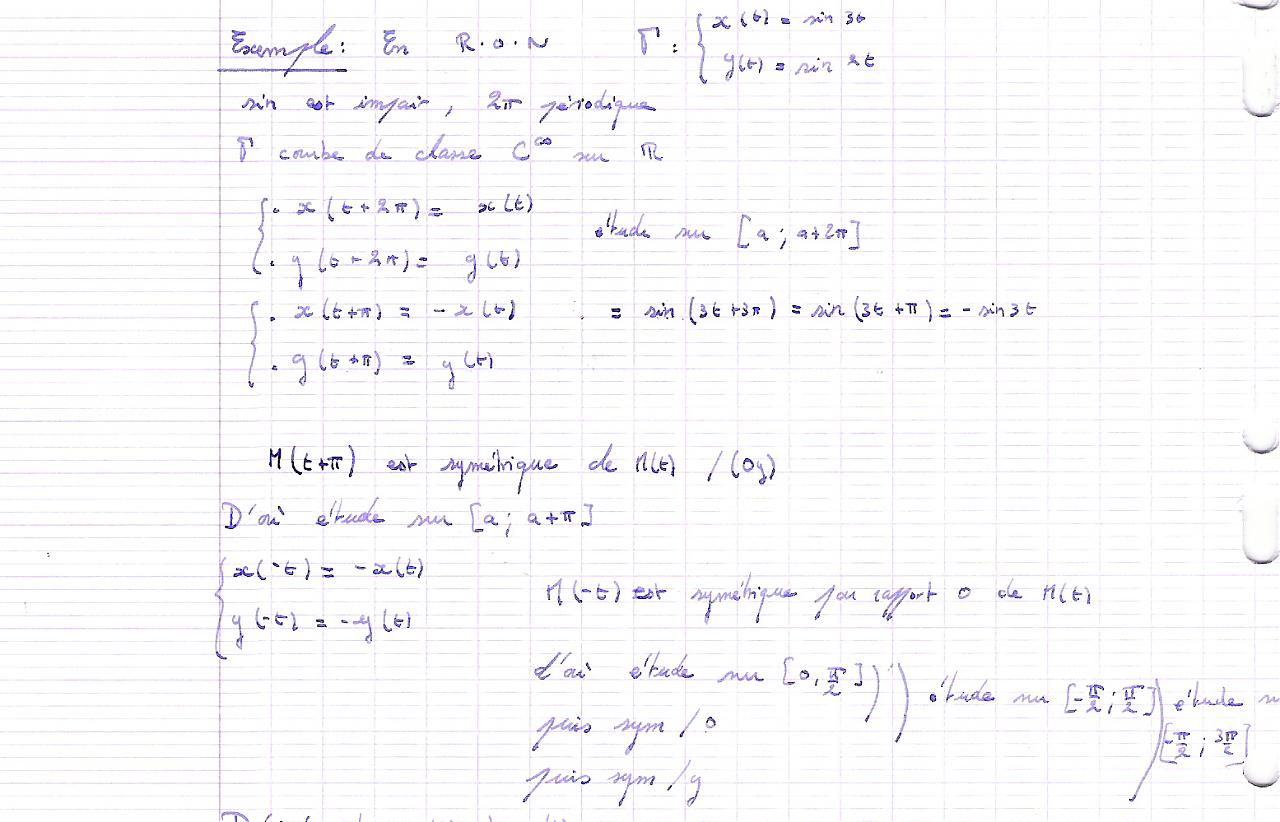 Exemple : En R.O.N Γ : { x(t) = sin 3t
y(t) = sin 2t
sin est impair, 2π périodique
Γ courbe de classe C^∞ sur ℝ
{ . x(t+2π) = x(t)
étude sur [a ; a+2π]
. y(t+2π) = y(t)
{ . x(t+π) = -x(t) = sin(3t+3π) = sin(3t+π) = -sin 3t
. y(t+π) = y(t)
M(t+π) est symétrique de M(t) / (Oy)
D'où étude sur [a ; a+π]
{ x(-t) = -x(t)
M(-t) est symétrique par rapport O de M(t)
y(-t) = -y(t)
d'où étude sur [0, π/2] ) ) étude sur [-π/2 ; π/2] ) étude
puis sym / O
[-π/2 ; 3π/2]
puis sym / y